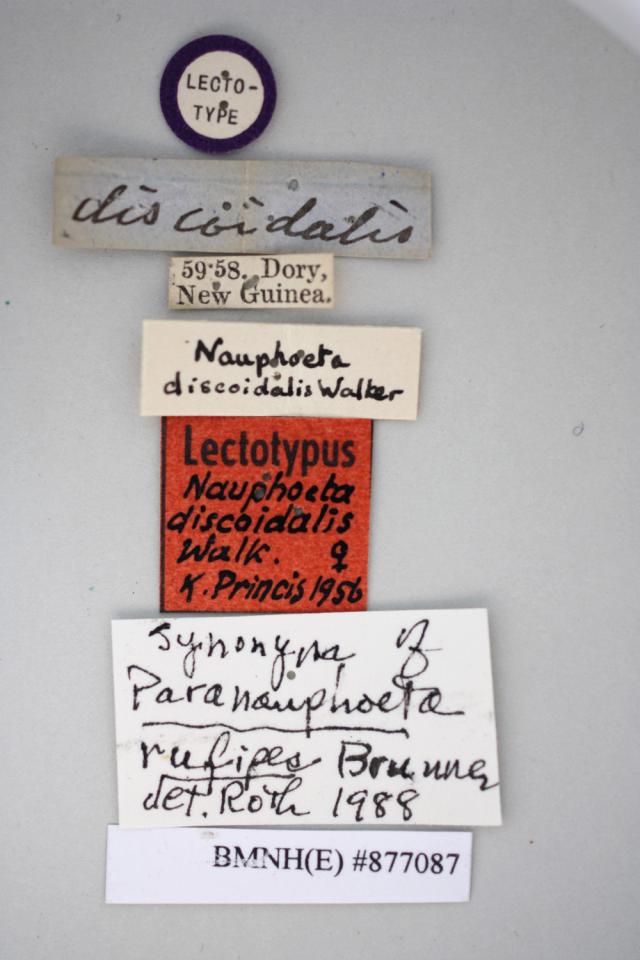 LECTO-
TYPE
discoïdalis
59·58. Dory,
New Guinea.
Nauphoeta
discoidalis Walker
Lectotypus
Nauphoeta
discoidalis
Walk. ♀
K. Princis 1956
synonym of
Paranauphoeta
rufipes Brunner
det. Roth 1988
BMNH(E) #877087